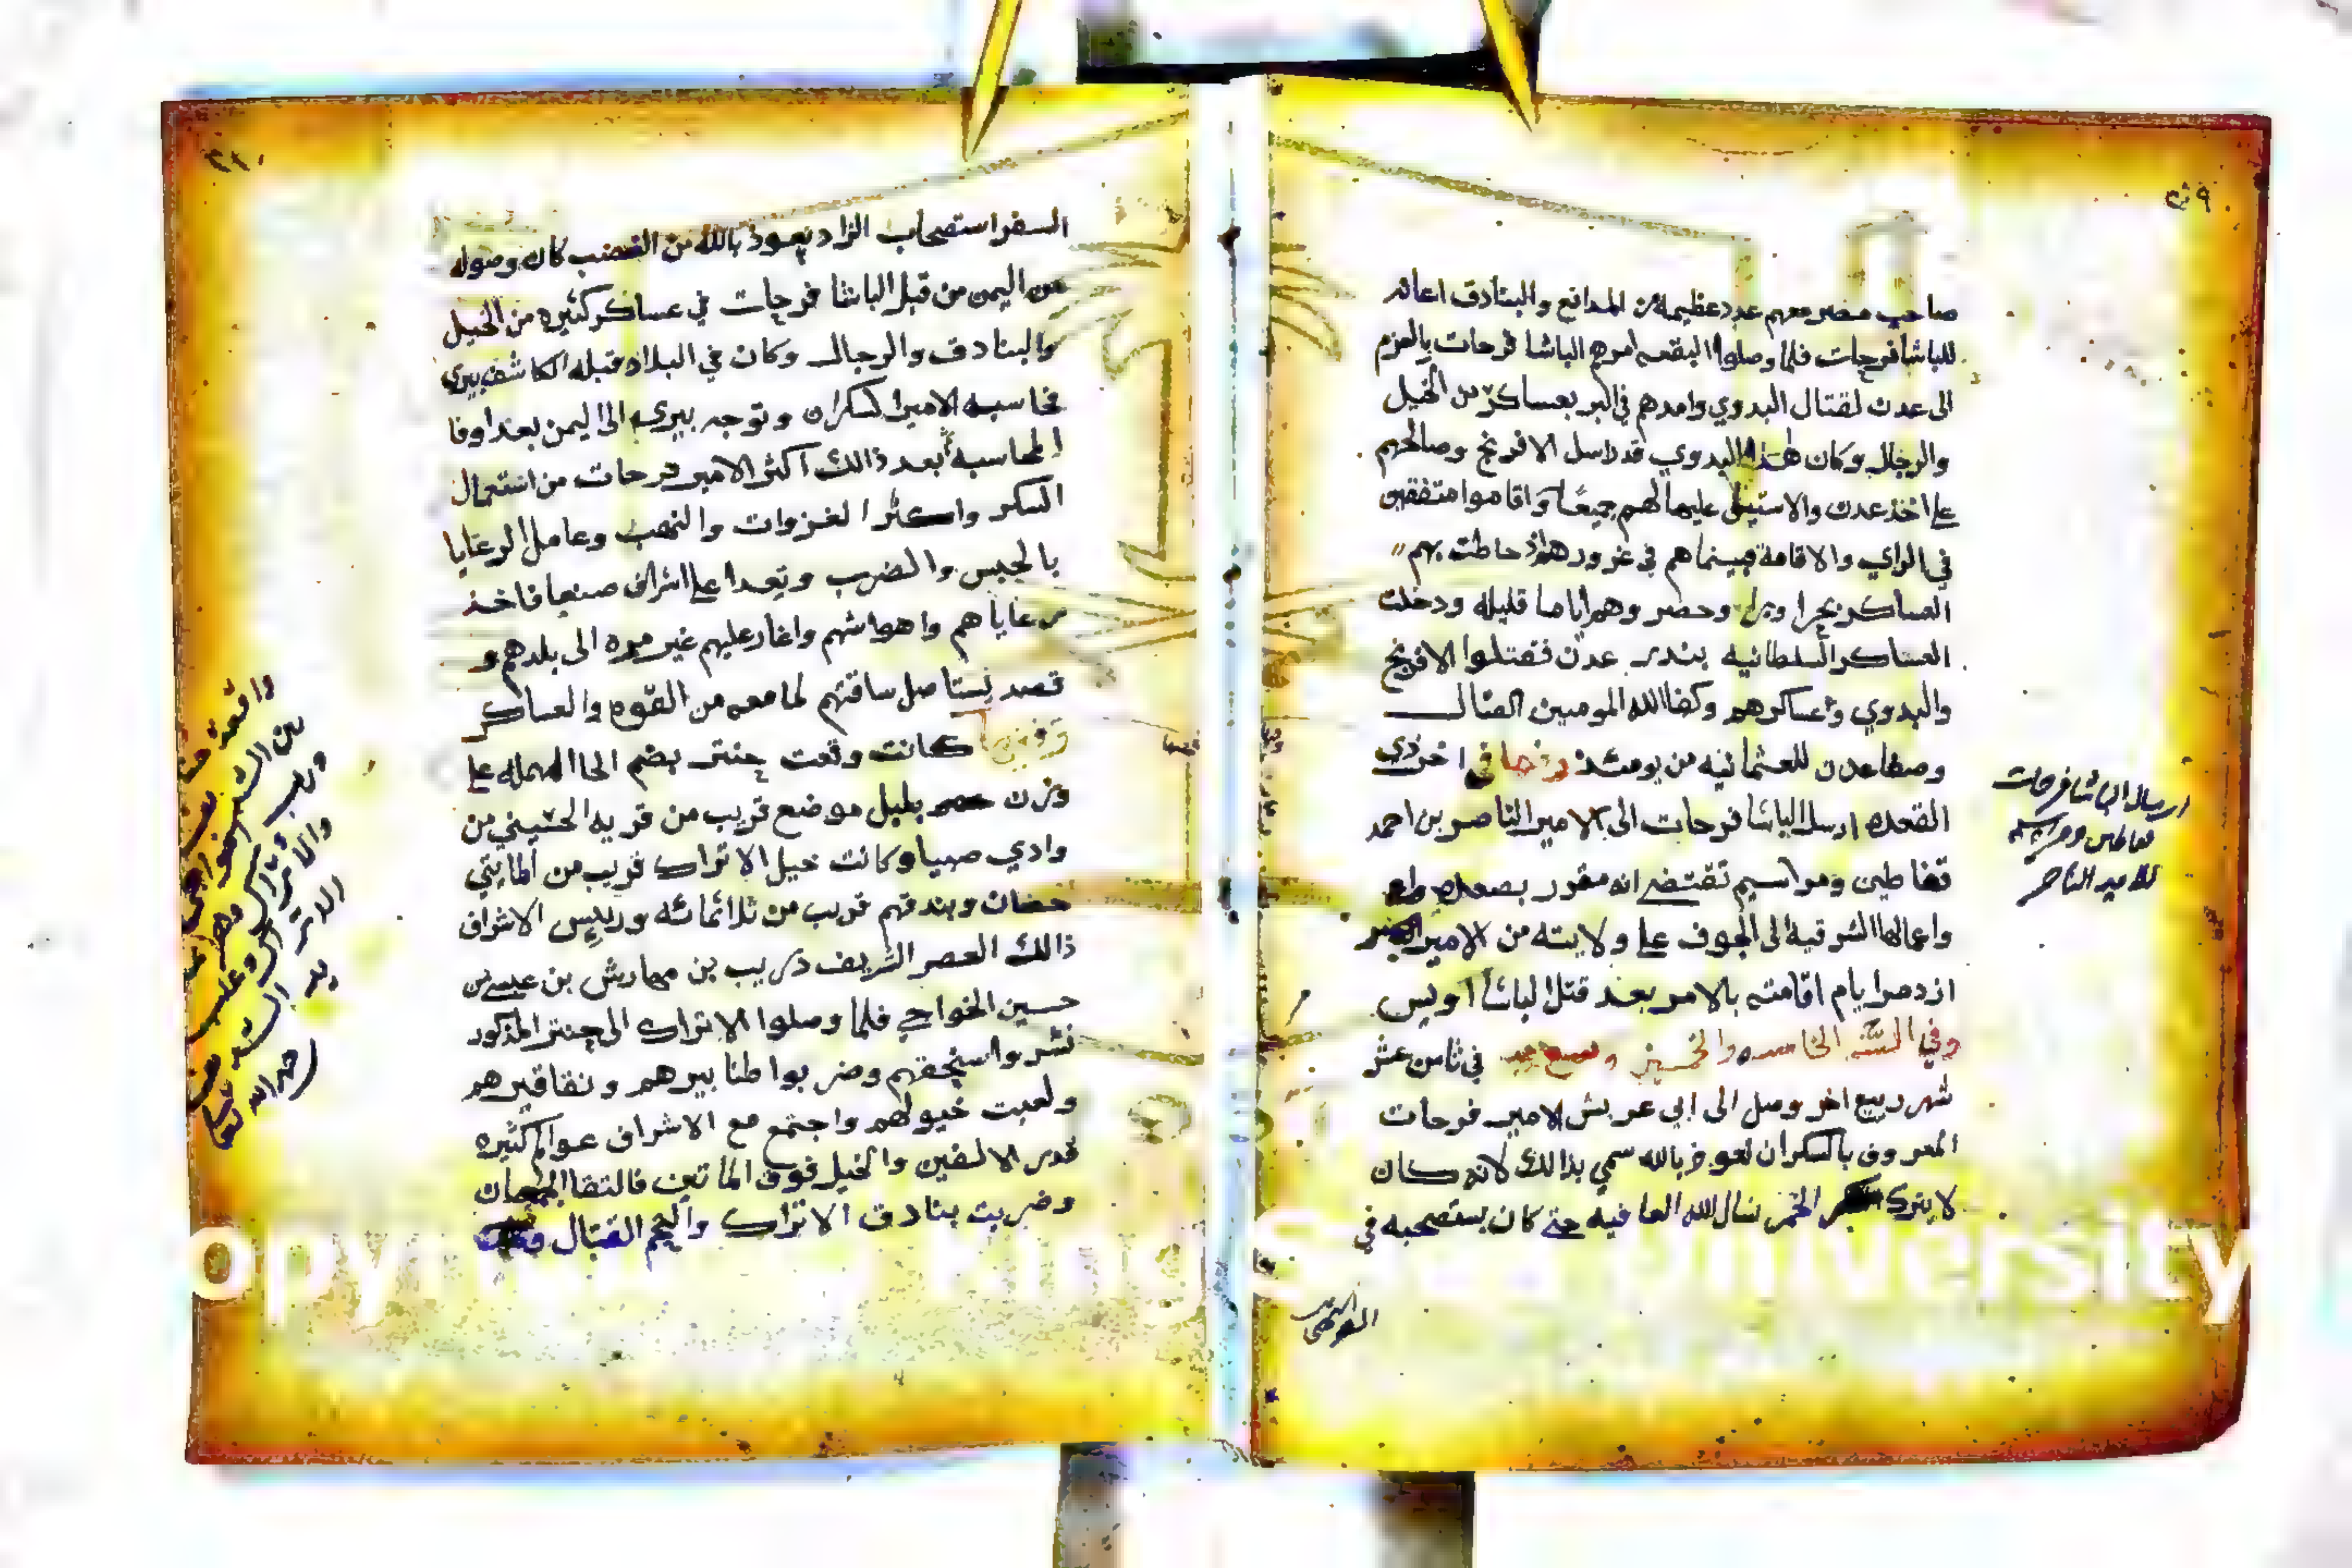 صاحب مصر معهم عدد عظيمة من المدافع والبنادق اعانه
للباشا فرحات فلما وصلوا البقعه امرهم الباشا فرحات بالعزم
الى عدن لقتال البدوي وامدهم في البر بعساكر من الخيل
والرجال وكان هذا البدوي قد راسل الافرنج وصالحهم
على اخذ عدن والاستيلى عليها لهم جميعًا واقاموا متفقين
في الراي والاقامة فبينما هم في غرورهم اذ حاطت بهم
العساكر بحرا وبرا وحصروهم اياما قليله ودخلت
العساكر السلطانيه بندر عدن فقتلوا الافرنج
والبدوي وعساكرهم وكفا الله المومنين القتال
وصفا عدن للعثمانيه من يومئذ وفيها في اخر ذي
القعده ارسل الباشا فرحات الى الامير الناصر بن احمد
قفاطين ومراسيم تقتضي انه مقرر بصعده
واعمالها الشرقية الى الجوف على ولايته من الامير
ازدمر ايام اقامته بالامر بعد قتل الباشا اويس
وفي السنه الخامسه والخمسين وتسع في ثامن عشر
شهر ربيع اخر وصل الى ابي عريش الامير فرحات
المعروف بالسكران نعوذ بالله سمي بذالك لانه كان
لا يترك الخمر نسال الله العافيه حتى كان يستصحبه في
ارسال الباشا فرحات
قفاطين ومراسيم
للامير الناصر
السفر استصحاب الزاد نعوذ بالله من الغضب كان وصوله
من اليمن من قبل الباشا فرحات في عساكر كثيره من الخيل
والبنادق والرجال وكان في البلاد قبله الكاشف بيري
فحاسبه الامير السكران وتوجه بيري الى اليمن بعد اوفا
المحاسبه بعد ذالك اكثر الامير فرحات من استعمال
السكر واكثر الغزوات والنهب وعامل الرعايا
بالحبس والضرب وتعدا على اشراف صبيا فاخذ
رعاياهم واهواشهم واغار عليهم غير مره الى بلدهم و
قصد يستاصل ساقتهم لما معه من القوه والعساكر
وفيها كانت وقعت حنتر بضم الحا المهمله على
وزن بلبل موضع قريب من قريه الحسيني من
وادي صبيا وكانت خيل الاتراك قريب من المايتي
حصان وبندقهم قريب من ثلاثمائه ورييس الاشراف
ذالك العصر الشريف دريب بن مهارش بن عيسى بن
حسين الخواجي فلما وصلوا الاتراك الى حنتر المذكور
نشروا سنجقهم وضربوا طنابيرهم ونقاقيرهم
ولعبت خيولهم واجتمع مع الاشراف عوالم كثيره
قدر الالفين والخيل فوق الماتين فالتقا الجمعان
وضربت بنادق الاتراك والتحم القتال